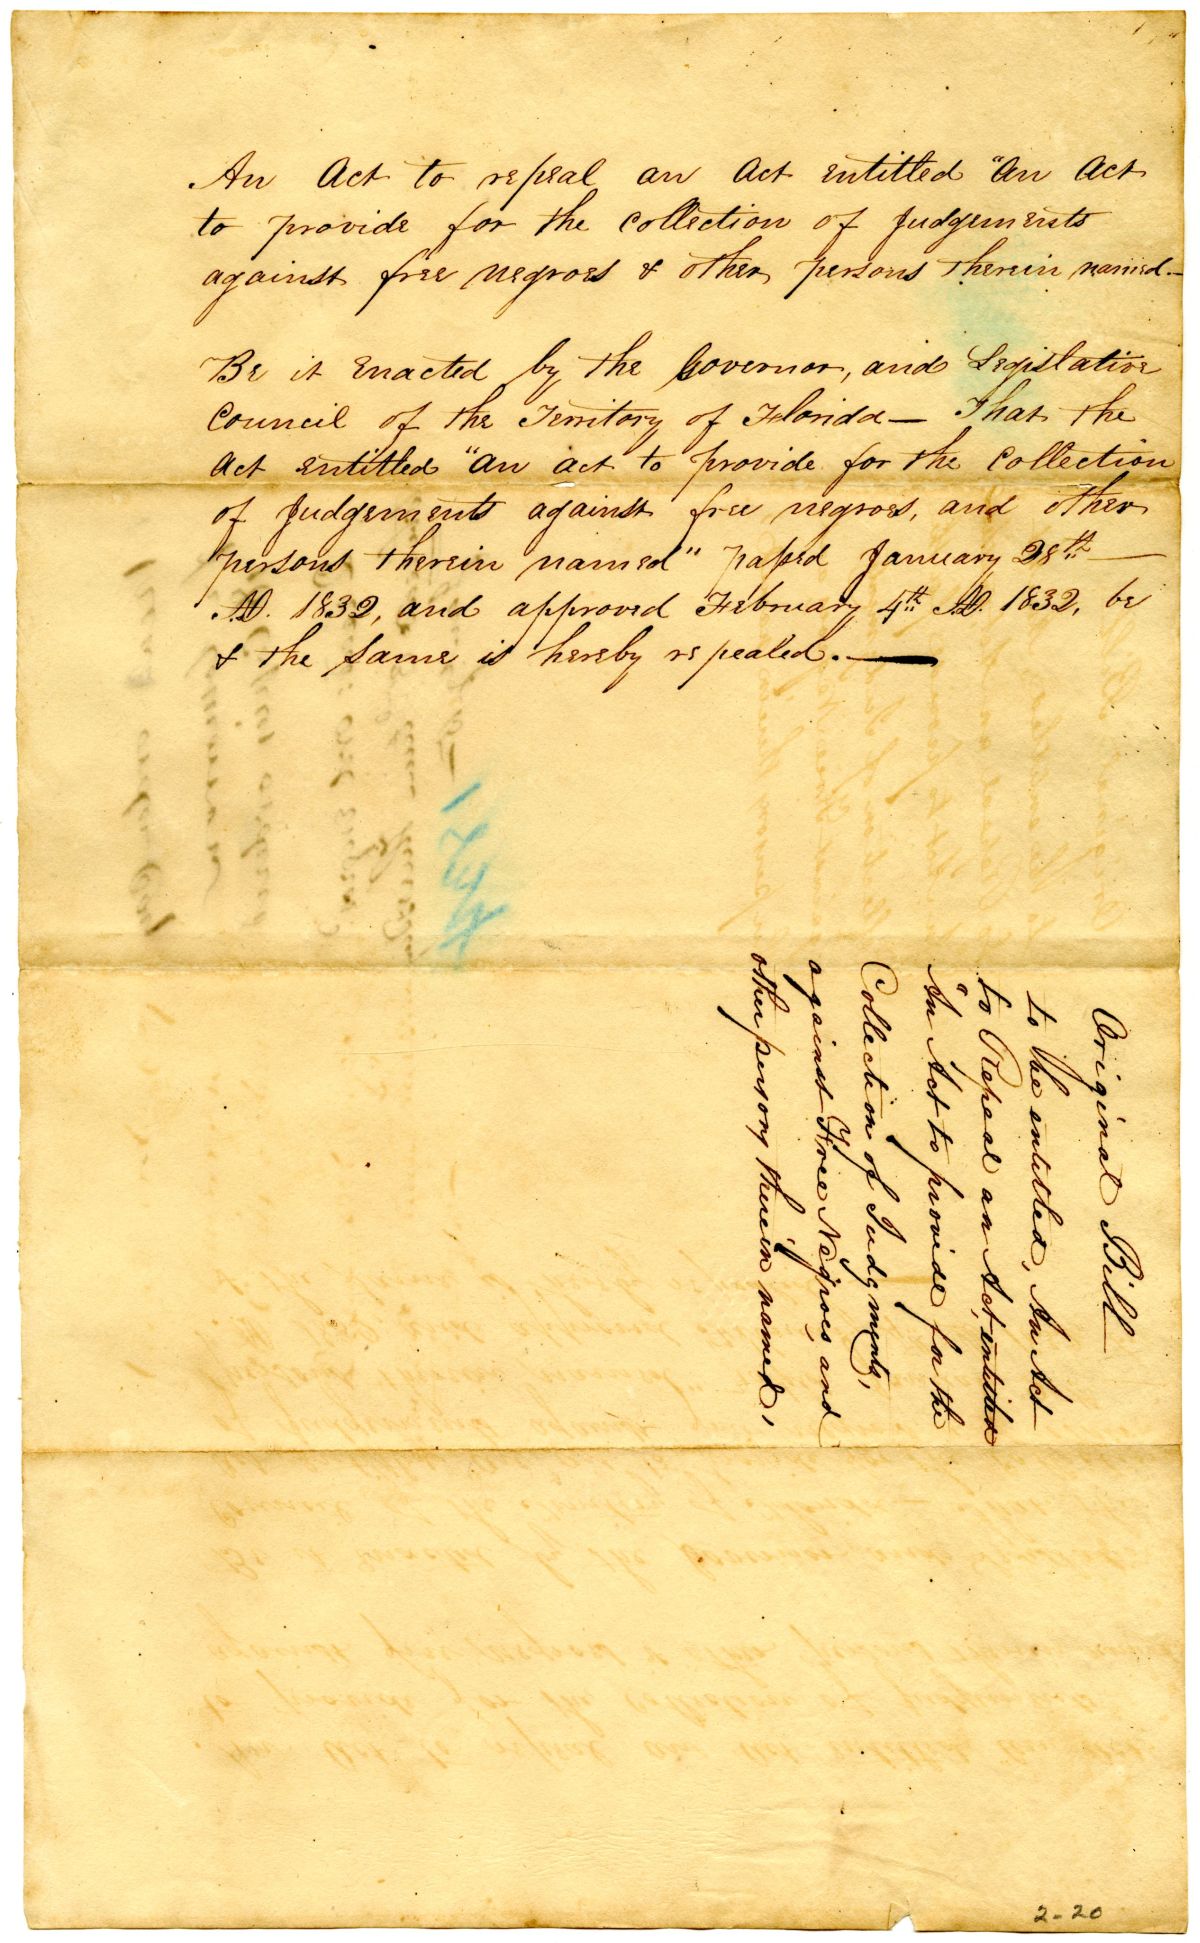 An Act to repeal an Act entitled "An Act
to provide for the Collection of Judgements
against free negroes & other persons therein named—
Be it Enacted by the Governor, and Legislative
Council of the Territory of Florida— That the
Act entitled "An act to provide for the Collection
of Judgements against free negroes, and other
persons therein named" passed January 28th—
A.D. 1832, and approved February 4th A.D. 1832, be
& the same is hereby repealed.—
Original Bill
to the entitled, An Act
to Repeal an Act, entitled
"An Act to provide for the
Collection of Judgments,
against Free Negroes, and
other persons therein named,
2-20